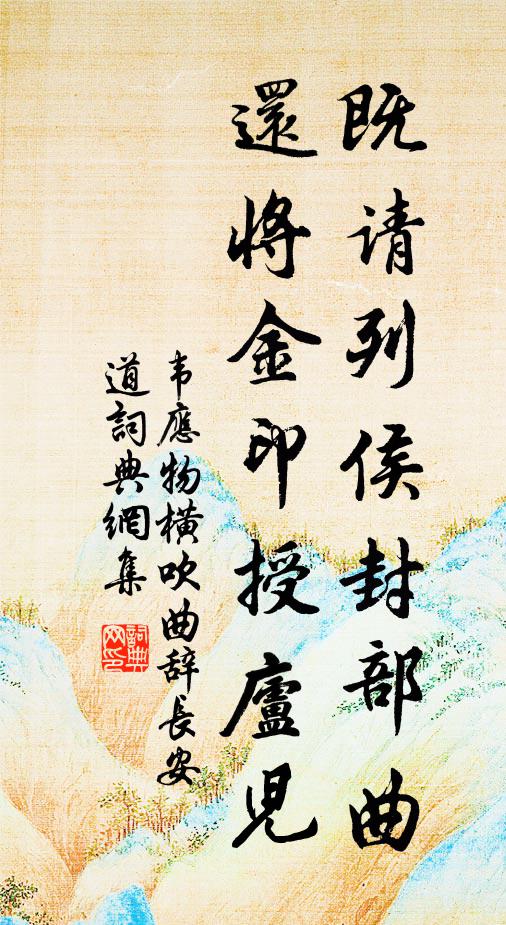 既请列侯封部曲
還將金印授廬兒
韦應物橫吹曲辞長安
道詞典網集
詞典
网印